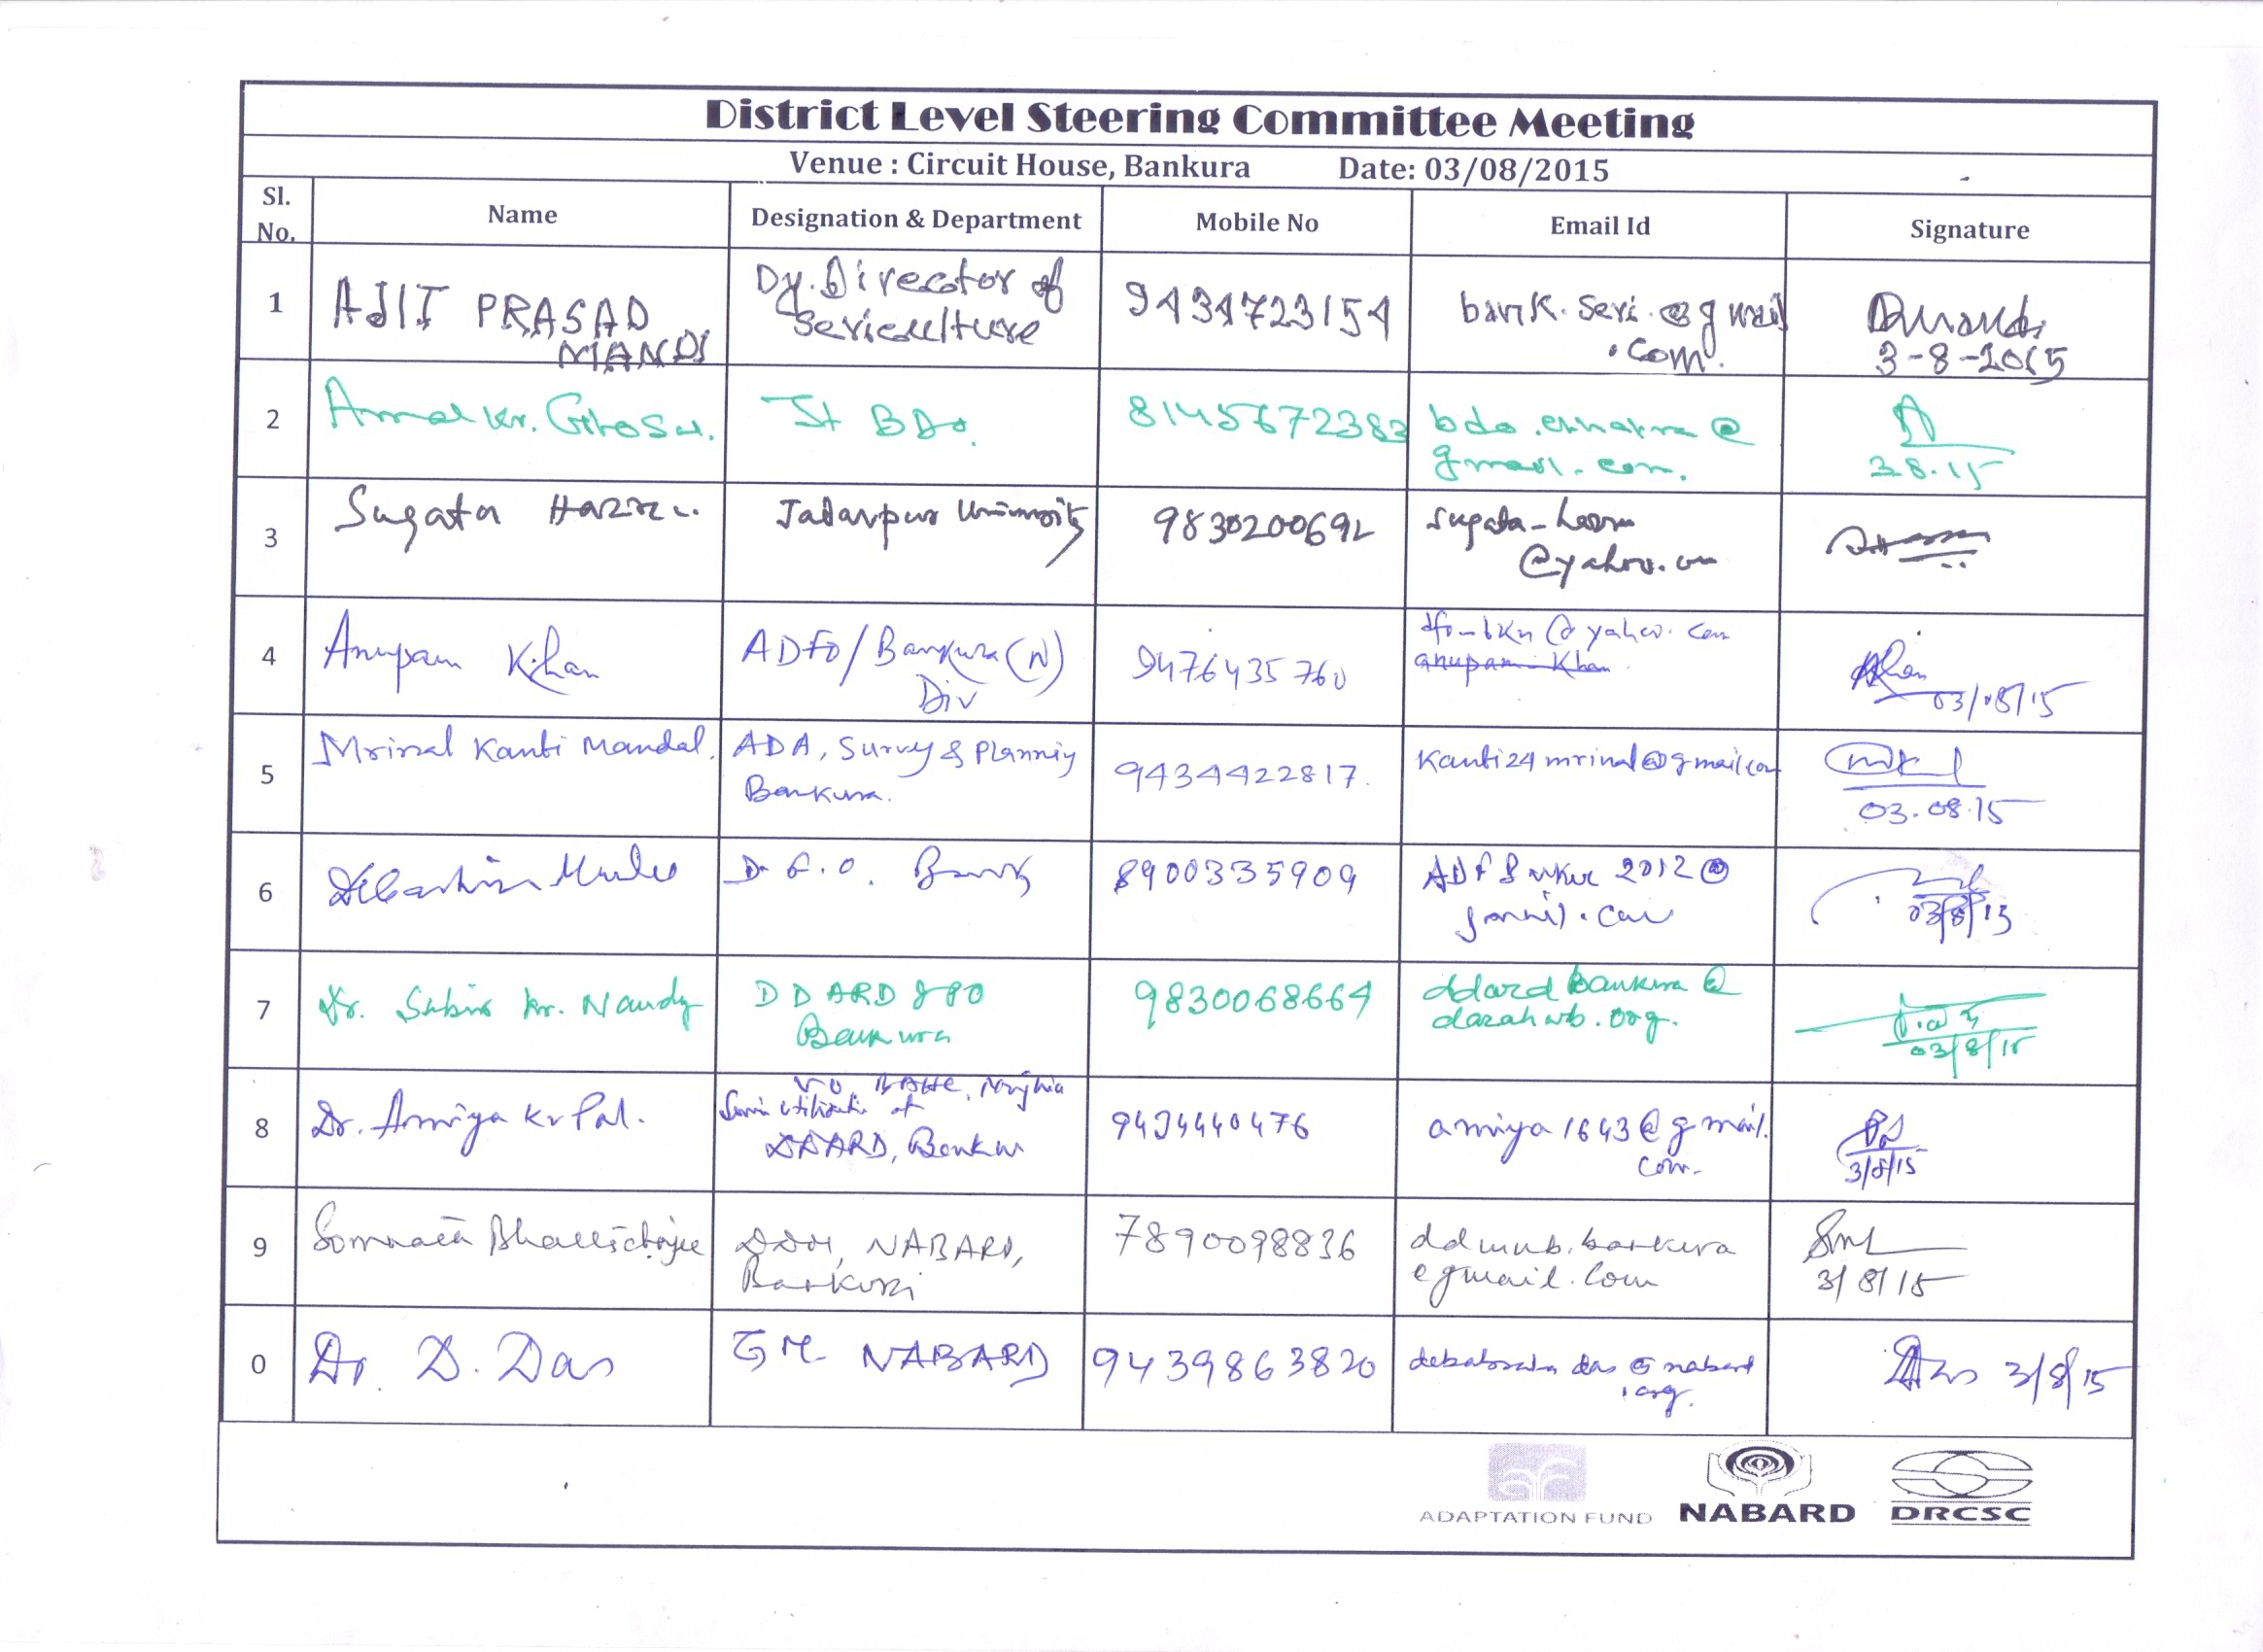 District Level Steering Committee Meeting
Venue : Circuit House, Bankura Date: 03/08/2015
Sl. No. Name Designation & Department Mobile No Email Id Signature
1 AJIT PRASAD MANDI Dy. Director of Sericulture 9434723154 bank.seri.@gmail.com. 3-8-2015
2 Amal Kr. Ghosh. Jt BDO. 8145672383 bdo.chhatna@gmail.com. 3.8.15
3 Sugata Hazra Jadavpur University 9830200692 sugata_hazra@yahoo.com
4 Anupam Khan ADFO/Bankura (N) Div 9476435760 dfo-bkn@yahoo.com anupam-Khan 03/08/15
5 Mrinal Kanti Mandal. ADA, Survey & Planning Bankura. 9434422817. Kanti24mrinal@gmail.com 03.08.15
6 D.F.O. 8900335909 2012@gmail.com 03/8/15
7 Dr. Subir Kr. Nandy DD ARD & PO Bankura 9830068664 ddardbankura@darahwb.org. 03/8/15
8 Dr. Amiya Kr Pal. VO, Service utilisation at DDARD, Bankura 9434440476 amiya1643@gmail.com. 3/8/15
9 Somnath Bhattacharjee DDM, NABARD, Bankura 7890098836 ddmnab.bankura@gmail.com 3/8/15
0 Dr. D. Das GM NABARD 9439863820 debabrata.das@nabard.org. Das 3/8/15
ADAPTATION FUND NABARD DRCSC